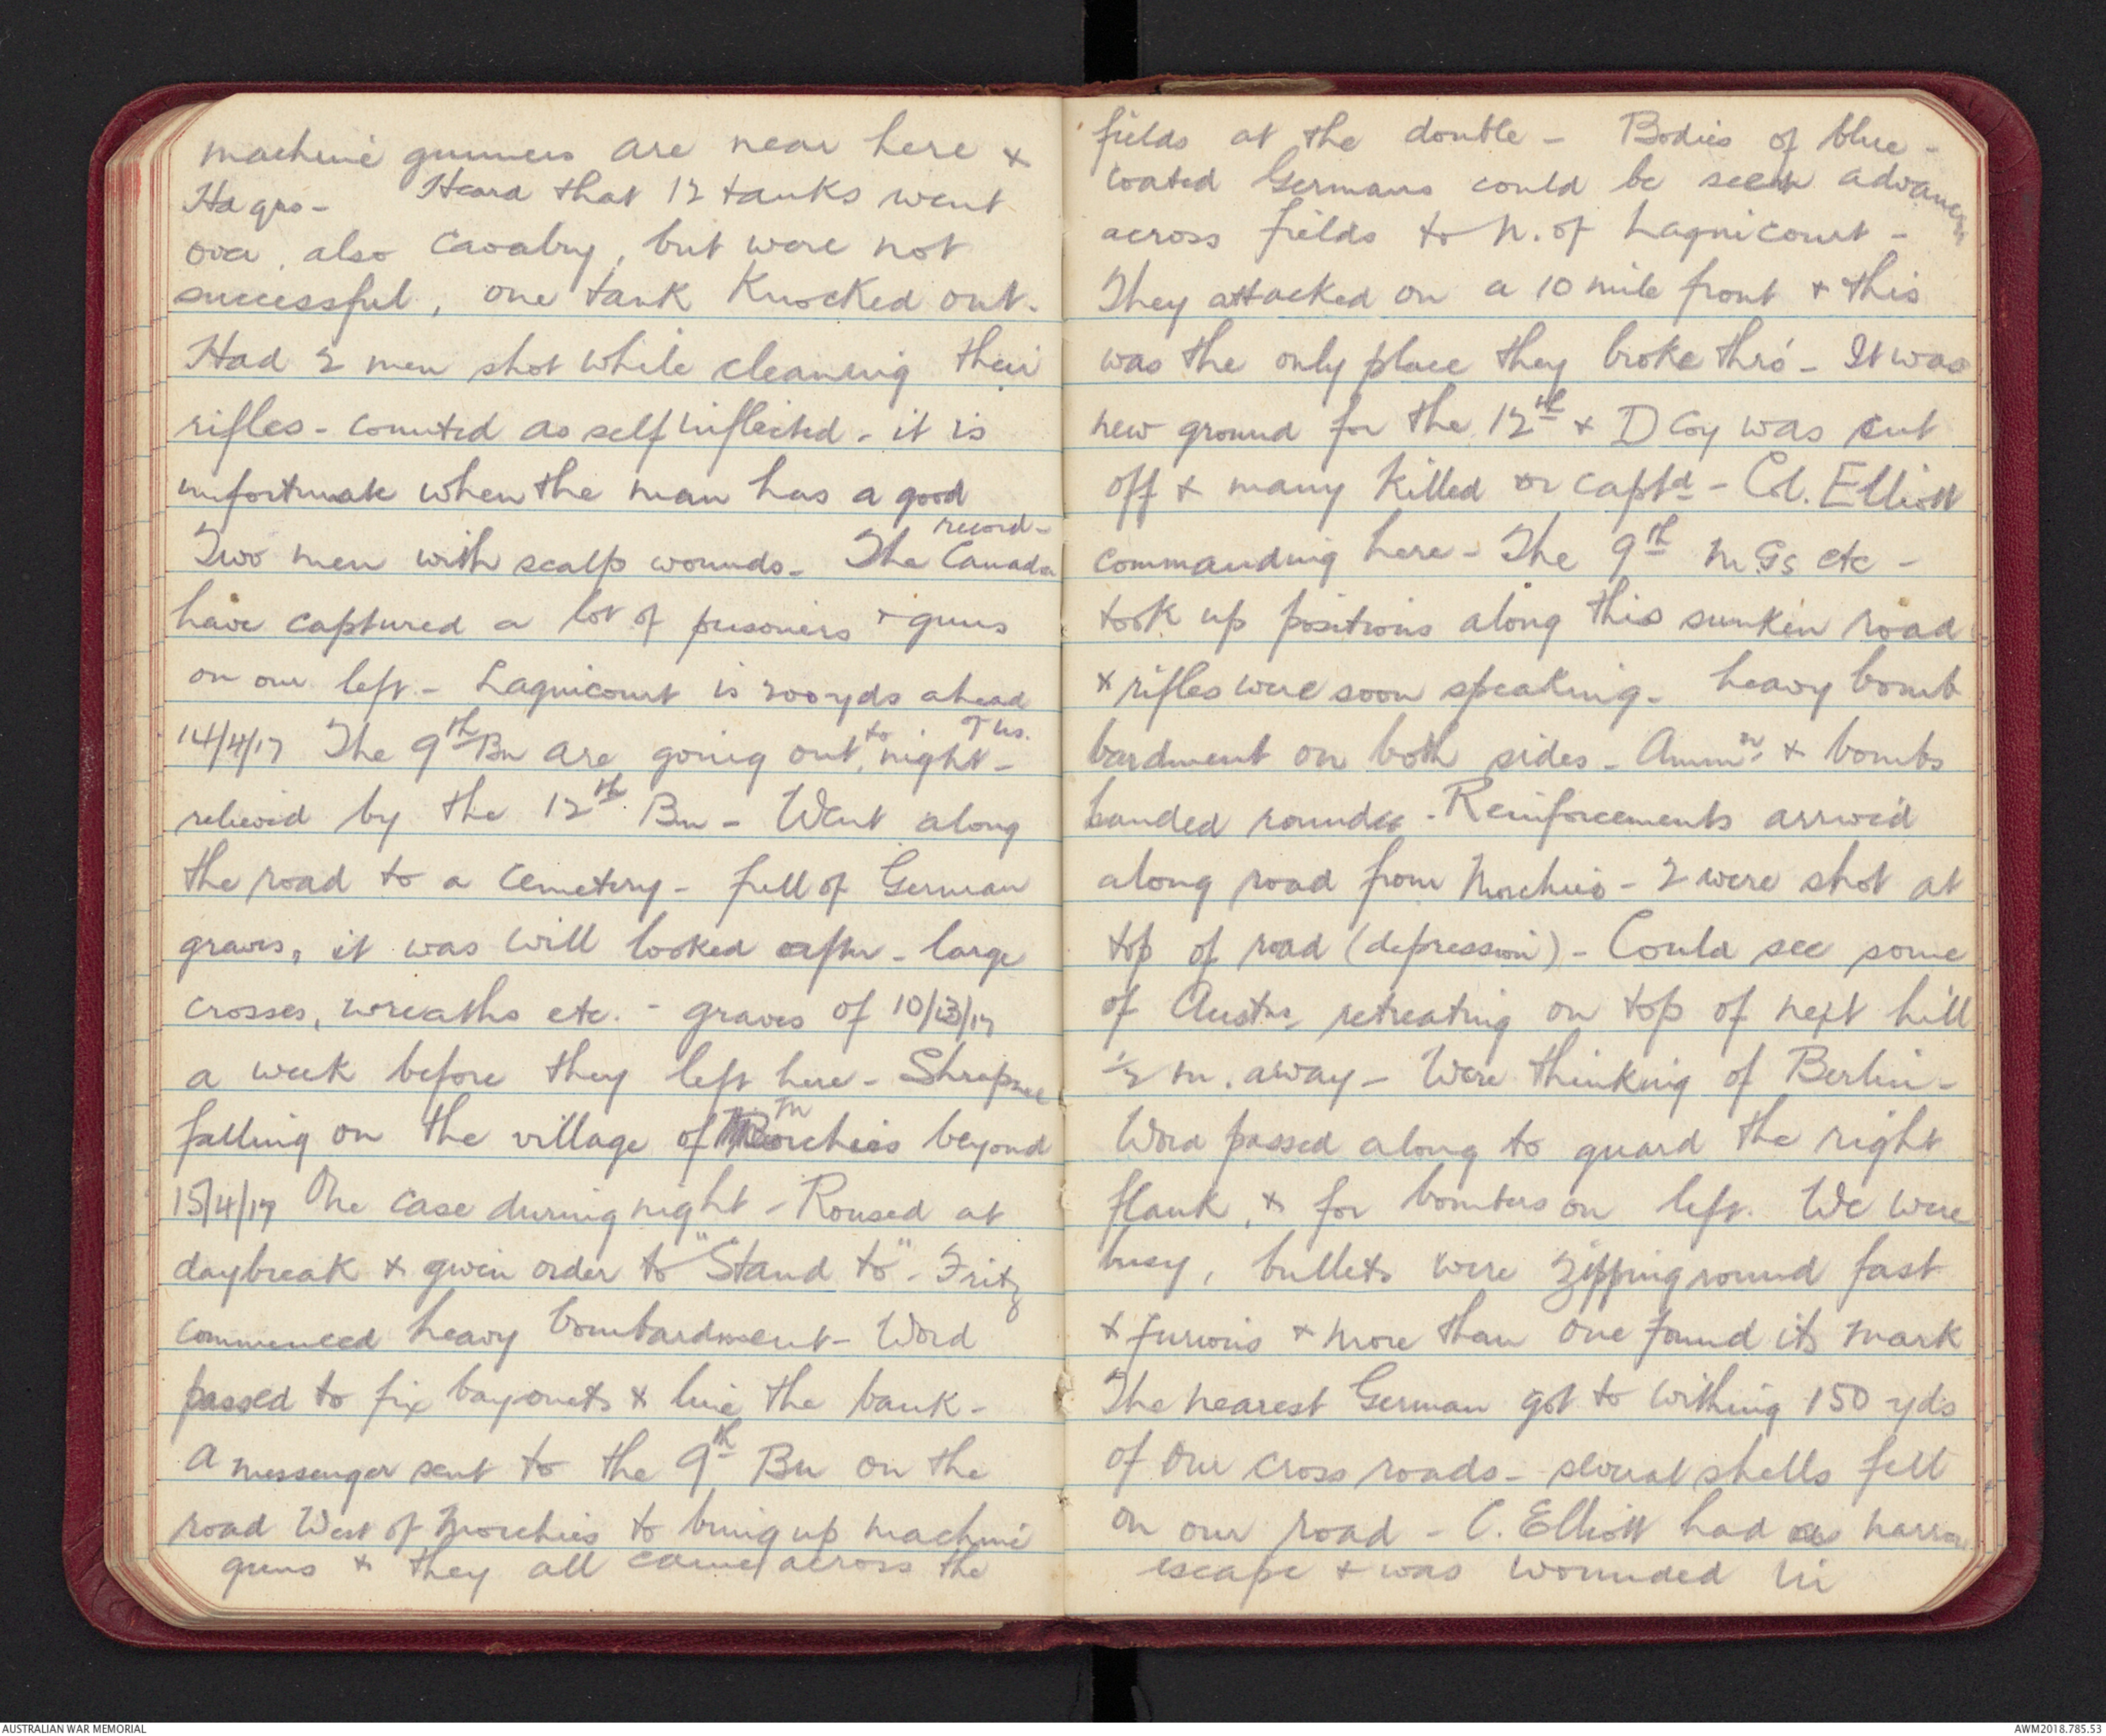 machine gunners are near here &
Hdqrs - Heard that 12 tanks went
over, also Cavalry, but were not
successful, one tank Knocked out.
Had 2 men shot while cleaning their
rifles - counted as self inflicted - it is
unfortunate when the man has a good
record -
Two men with scalp wounds. The Canada
have captured a lot of prisoners + guns
on our left - Lagnicourt is 200 yds ahead
of us.
14/4/17 The 9th Bn are going out to night -
relieved by the 12th Bn - Went along
the road to a Cemetery - full of German
graves, it was well looked after - large
crosses, wreaths etc. - graves of 10/3/17
a week before they left here - Shrapnel
falling on the village of Morchies beyond
15/4/17 One case during night - Roused at
daybreak & given order to "Stand to" - Fritz
commenced heavy bombardment - Word
passed to fix bayonets & line the bank -
A messenger sent to the 9th Bn on the
road West of Morchies to bring up machine
guns & they all came across the
fields at the double - Bodies of blue -
coated Germans could be seen advancg
across fields to N. of Lagnicourt -
They attacked on a 10 mile front + this
was the only place they broke thro' - It was
new ground for the 12th & D Coy was cut
off & many Killed or captd - Col. Elliott
commanding here - The 9th M.Gs etc -
took up positions along this sunken road
& rifles were soon speaking - heavy bomb
bardment on both sides - Ammn & bombs
handed round - Reinforcements arrived
along road from Morchies - 2 were shot at
top of road (depression) - Could see some
of Austns retreating on top of next hill
1/2 m. away - Were thinking of Berlin -
Word passed along to guard the right
flank, & for bombers on left. We were
busy, bullets were zipping round fast
& furious & more than one found its mark
The nearest German got to withing 150 yds
of our cross roads - several shells fell
on our road - C. Elliott had a narrow
escape & was wounded in
AUSTRALIAN WAR MEMORIAL
AWM2018.785.53